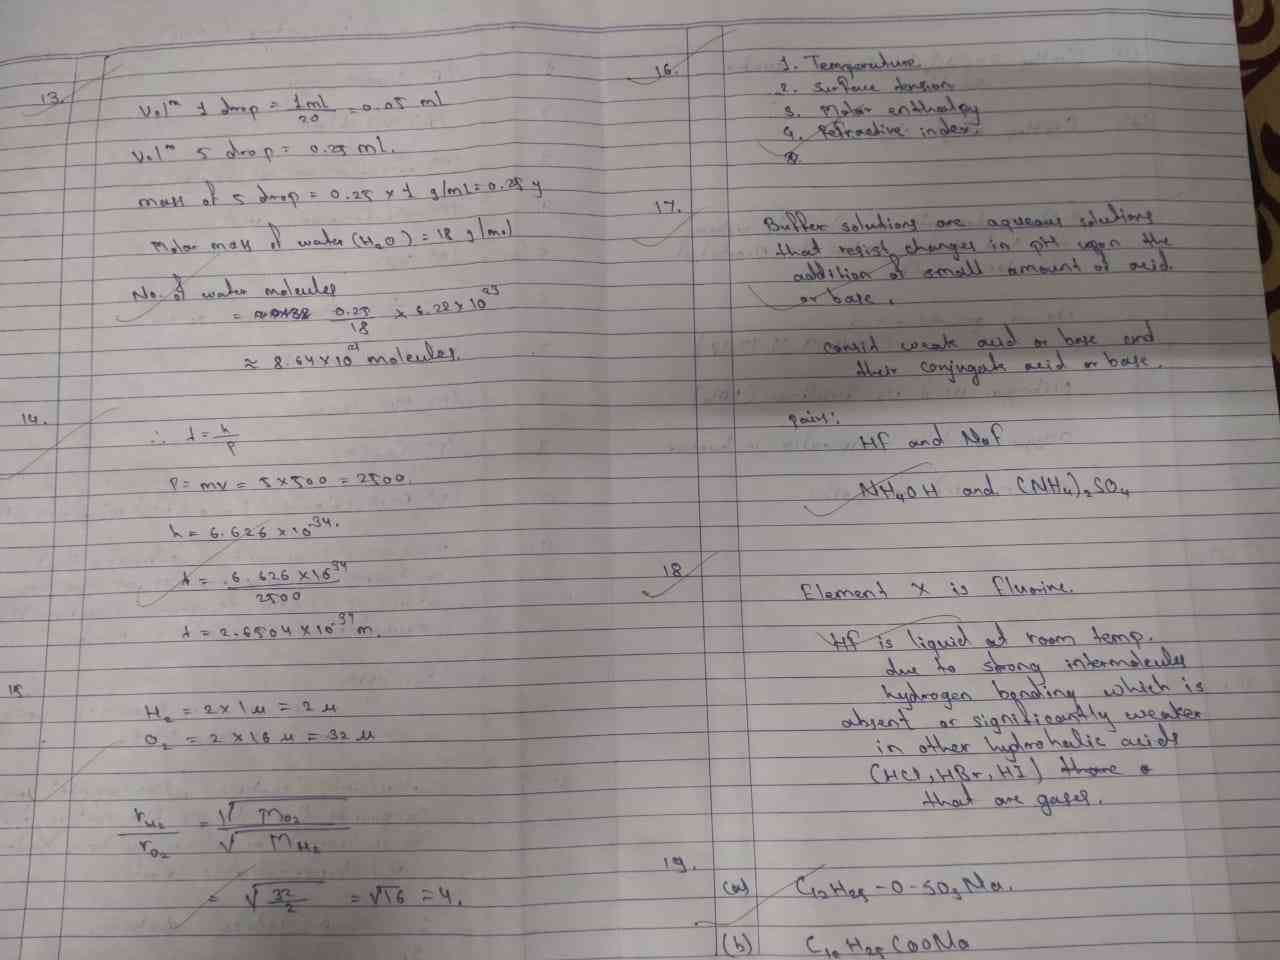 13.
Vol^m 1 drop = 1ml/20 = 0.05 ml
Vol^m 5 drop = 0.25 ml.
mass of 5 drop = 0.25 x 1 g/ml = 0.25 g
Molar mass of water (H₂O) = 18 g/mol
No. of water molecules
= 0.25/18 x 6.22 x 10²³
≈ 8.64 x 10²¹ molecules.
14.
∴ λ = h/p
P = mv = 5 x 500 = 2500.
h = 6.626 x 10⁻³⁴.
λ = 6.626 x 10⁻³⁴/2500
λ = 2.6504 x 10⁻³⁷ m.
15
H₂ = 2 x 1 u = 2 u
O₂ = 2 x 16 u = 32 u
r_H₂/r_O₂ = √M_O₂/√M_H₂
= √32/2 = √16 = 4.
16.
1. Temperature
2. Surface tension
3. Molar enthalpy
4. Refractive index.
17.
Buffer solutions are aqueous solutions
that resist changes in pH upon the
addition of small amount of acid
or base.
Consit weak acid or base and
their conjugate acid or base.
pairs:
HF and NaF
NH₄OH and (NH₄)₂SO₄
18
Element X is Fluorine.
HF is liquid at room temp.
due to strong intermolecules
hydrogen bonding which is
absent or significantly weaker
in other hydrohalic acids
(HCl, HBr, HI)
that are gases.
19.
(a) C₁₂H₂₅-O-SO₃Na.
(b) COONa